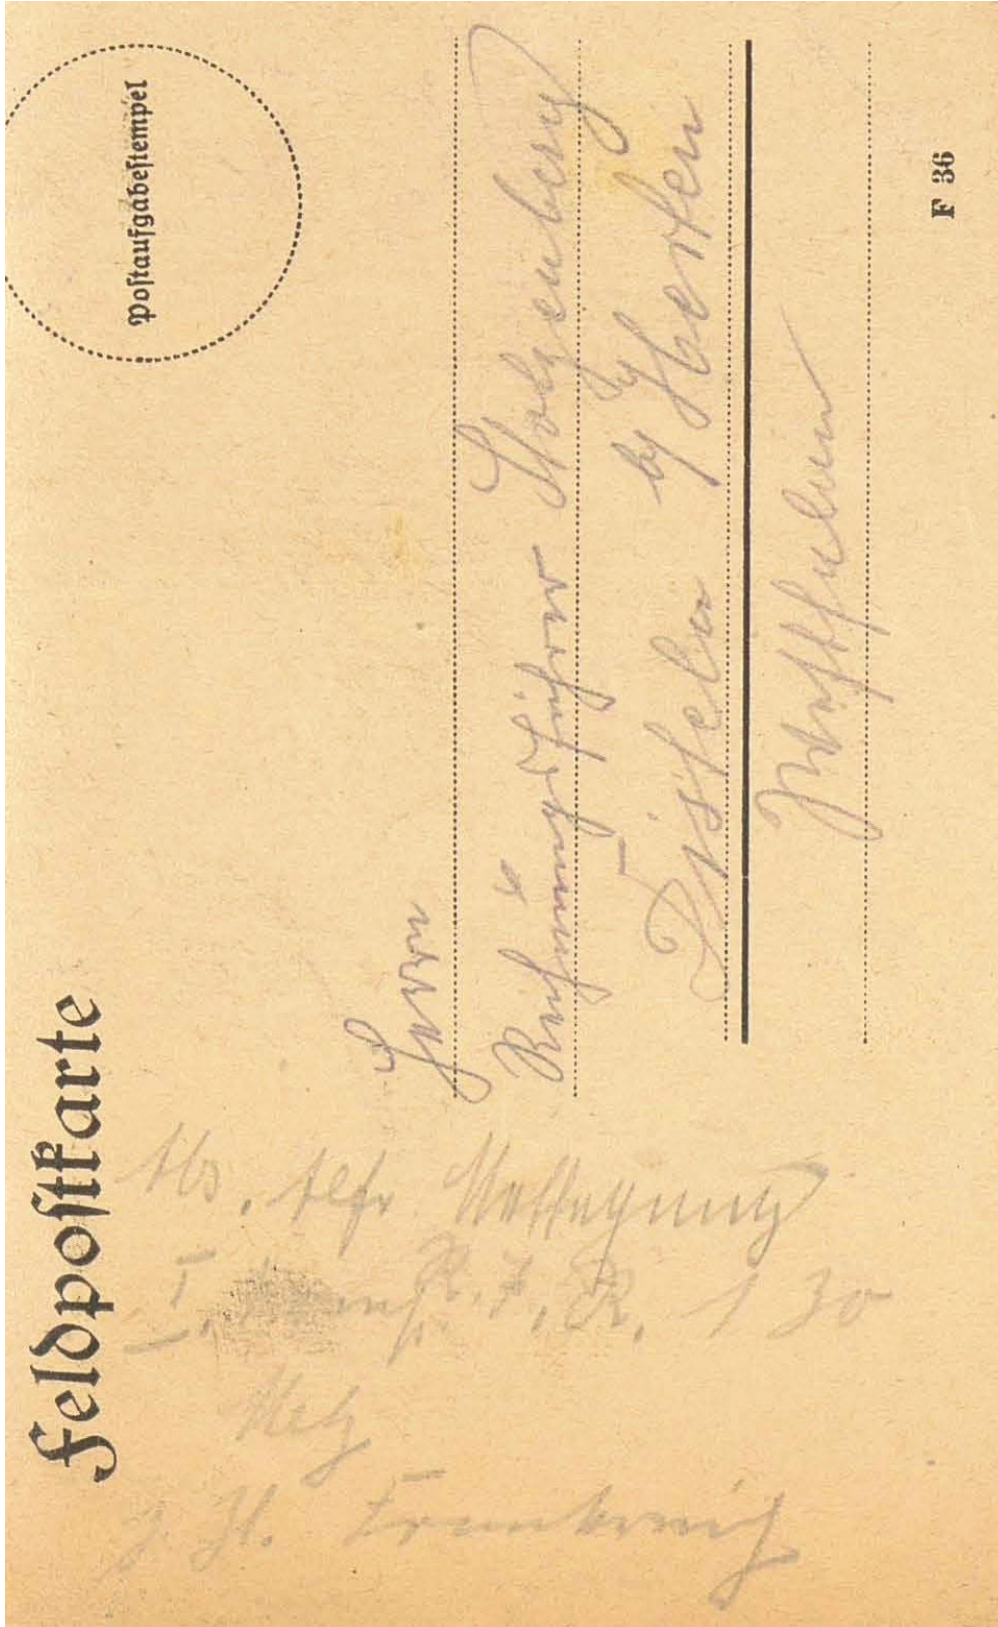 Feldpostkarte
Postaufgabestempel
Abs. Alfr.
I. R. I. R. 130
Metz
z. Zt. Frankreich
Herrn
Rechnungsführer Stolzenberg
Disteln by Herten
Westfalen
F 36